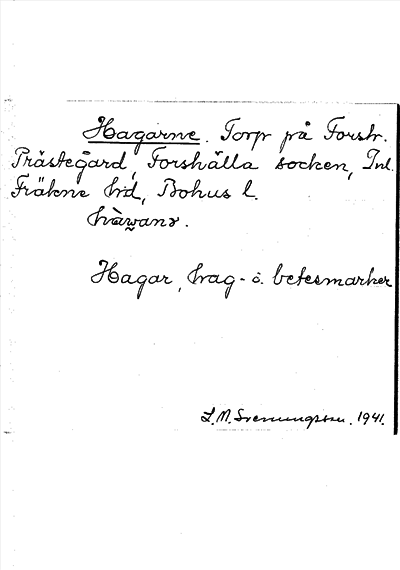 Hagarne. Torp på Forsh.
Prästegård, Forshälla socken, Inl.
Fräkne hd, Bohus l.
hàwanɤ.
Hagar, hag- o. betesmarker
L.M. Svenungsson. 1941.